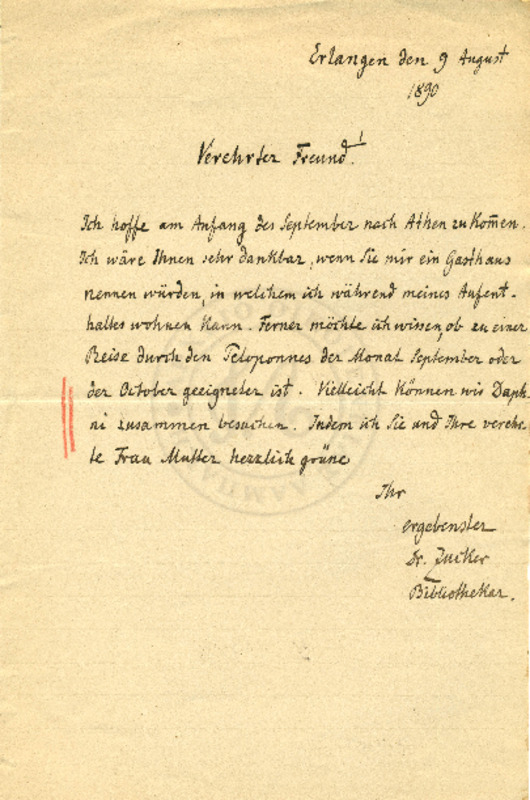 Erlangen den 9 August
1890
Verehrter Freund!
Ich hoffe am Anfang des September nach Athen zu kom̄en.
Ich wäre Ihnen sehr dankbar, wenn Sie mir ein Gasthaus
nennen würden, in welchem ich während meines Aufent-
haltes wohnen kann. Ferner möchte ich wissen, ob zu einer
Reise durch den Peloponnes der Monat September oder
der October geeigneter ist. Vielleicht können wir Daph-
ni zusammen besuchen. Indem ich Sie und Ihre verehr-
te Frau Mutter herzlich grüne
Ihr
ergebenster
Dr. Zucker
Bibliothekar.